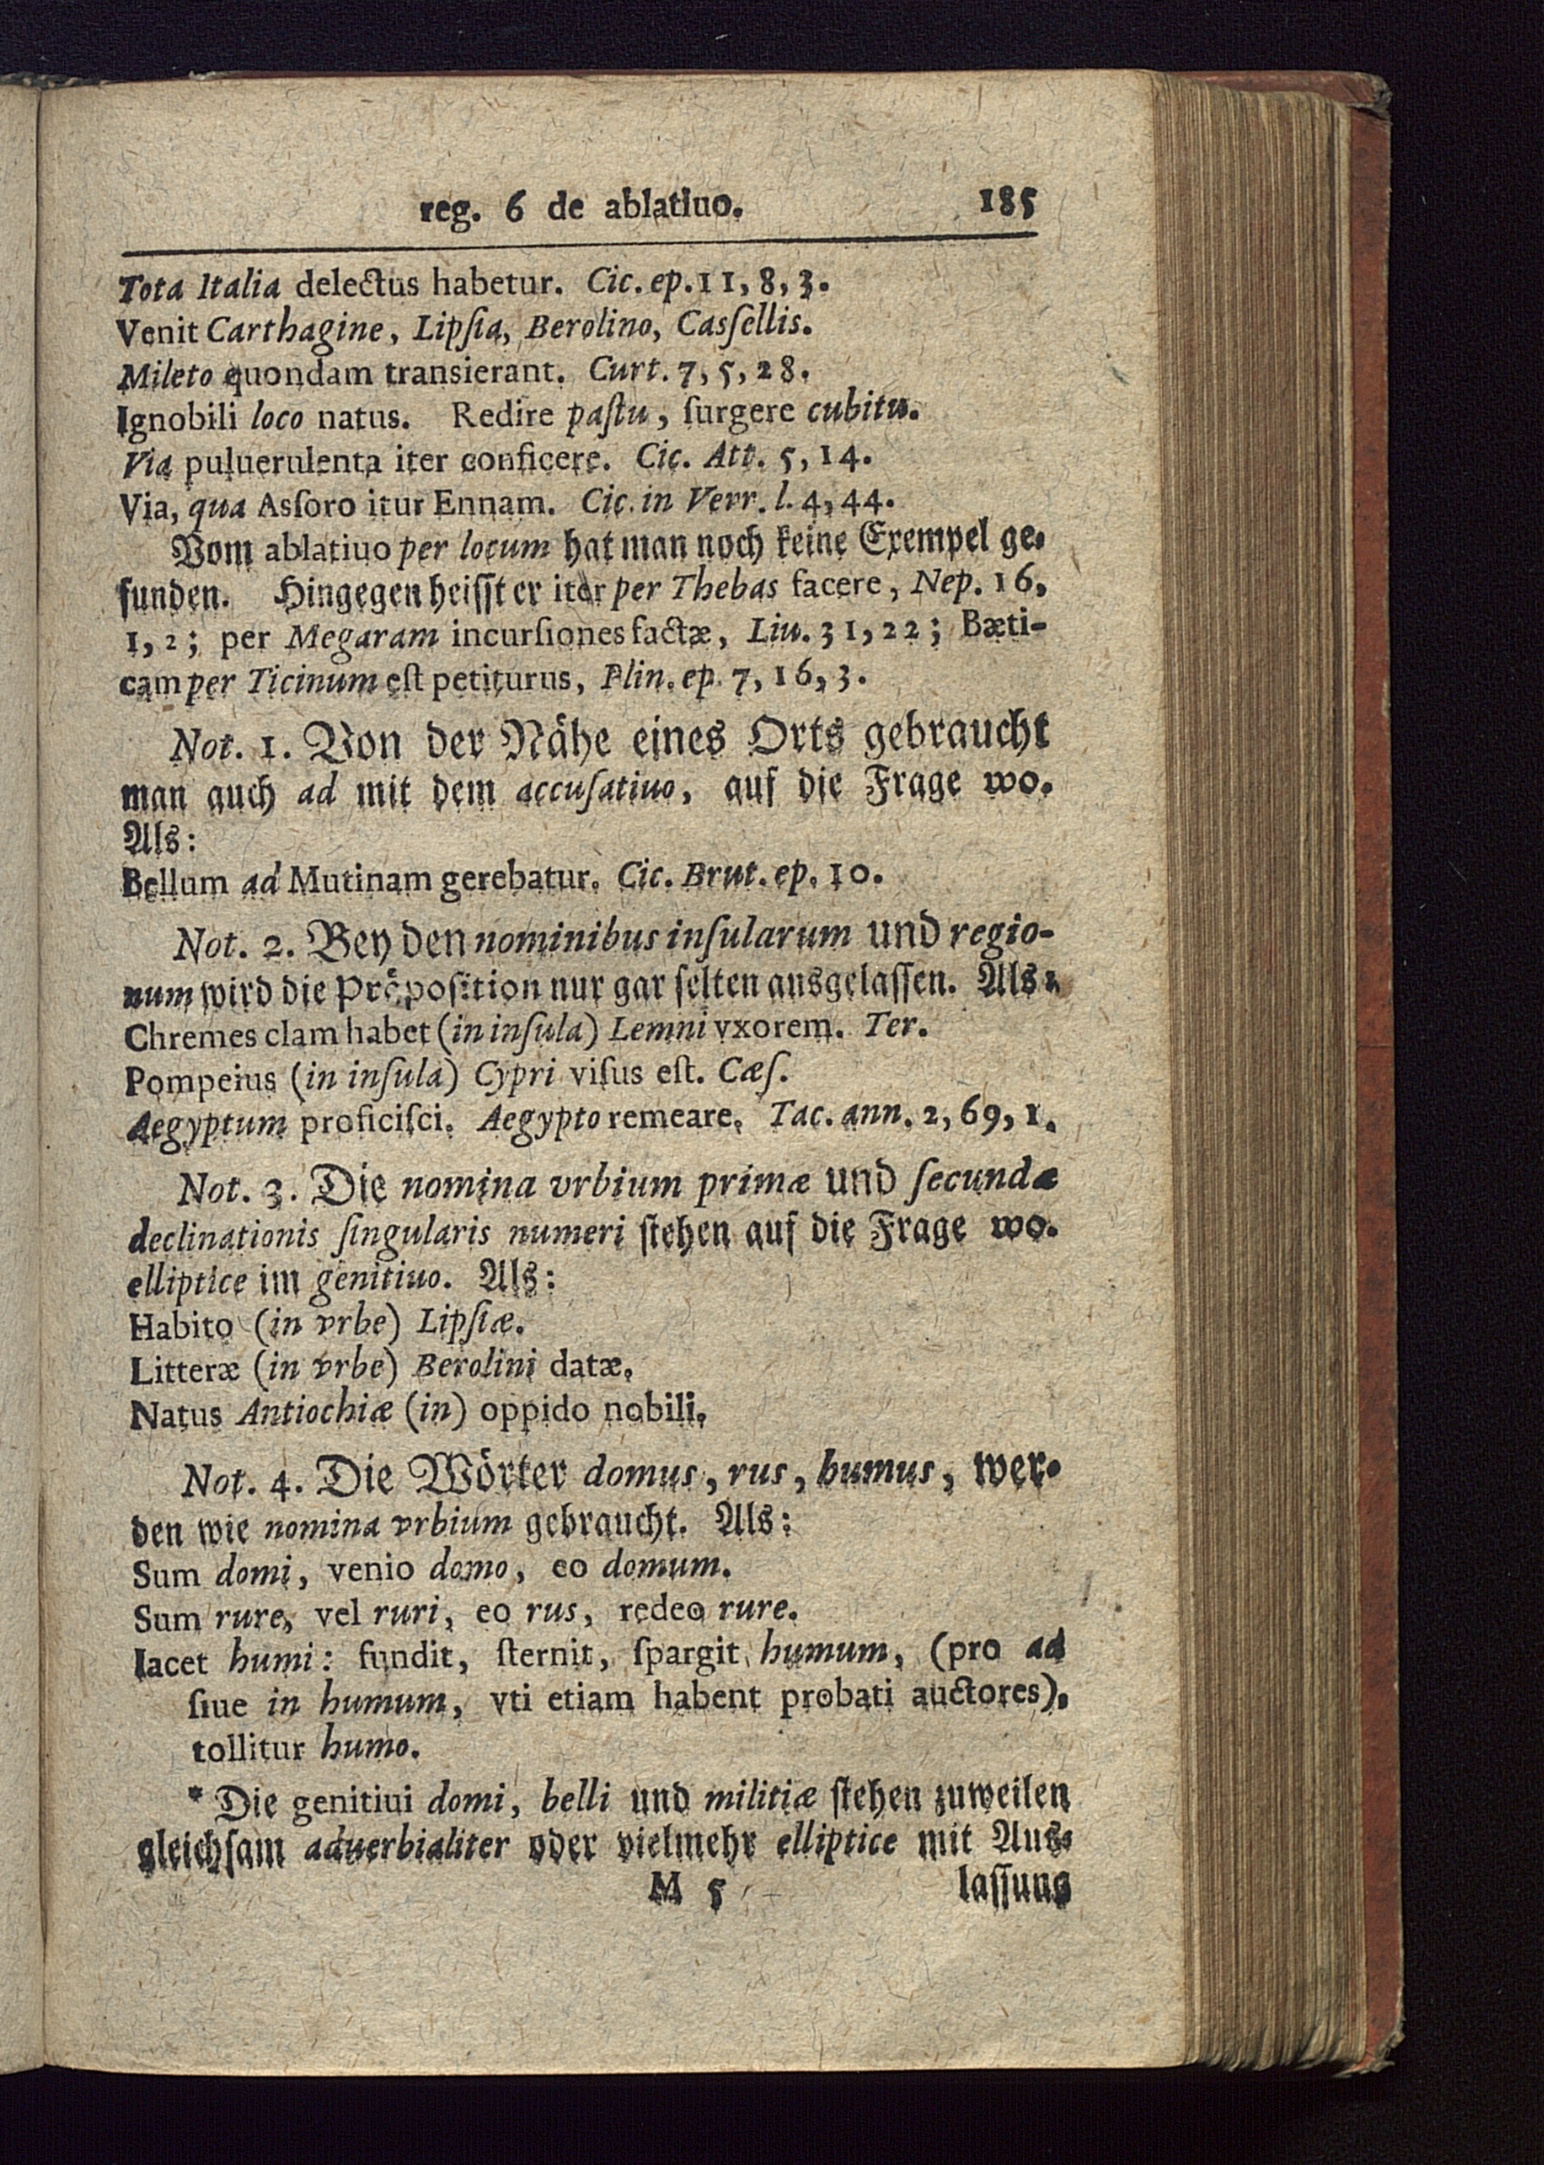 reg. 6 de ablatiuo. 185
Tota Italia delectus habetur. Cic. ep. 11, 8, 3.
Venit Carthagine, Lipſia, Berolino, Casſellis.
Mileto quondam transierant. Curt. 7, 5, 28.
Ignobili loco natus. Redire paſtu, ſurgere cubitu.
Via puluerulenta iter conficere. Cic. Att. 5, 14.
Via, qua Asſoro itur Ennam. Cic. in Verr. l. 4, 44.
Vom ablatiuo per locum hat man noch keine Exempel ge-
funden. Hingegen heiſſt er iter per Thebas facere, Nep. 16,
1, 2; per Megaram incurſiones factæ, Liu. 31, 22; Bæti-
cam per Ticinum eſt petiturus, Plin. ep. 7, 16, 3.
Not. 1. Von der Nähe eines Orts gebraucht
man auch ad mit dem accuſatiuo, auf die Frage wo.
Als:
Bellum ad Mutinam gerebatur. Cic. Brut. ep. 10.
Not. 2. Bey den nominibus inſularum und regio-
num wird die Präpoſition nur gar ſelten ausgelaſſen. Als:
Chremes clam habet (in inſula) Lemni vxorem. Ter.
Pompeius (in inſula) Cypri viſus eſt. Cæſ.
Aegyptum proficiſci. Aegypto remeare. Tac. ann. 2, 69, 1.
Not. 3. Die nomina vrbium primæ und ſecundæ
declinationis ſingularis numeri ſtehen auf die Frage wo.
elliptice im genitiuo. Als:
Habito (in vrbe) Lipſiæ.
Litteræ (in vrbe) Berolini datæ.
Natus Antiochiæ (in) oppido nobili.
Not. 4. Die Wörter domus, rus, humus, wer-
den wie nomina vrbium gebraucht. Als:
Sum domi, venio domo, eo domum.
Sum rure, vel ruri, eo rus, redeo rure.
Iacet humi: fundit, ſternit, ſpargit humum, (pro ad
ſiue in humum, vti etiam habent probati auctores),
tollitur humo.
* Die genitiui domi, belli und militiæ ſtehen zuweilen
gleichſam aduerbialiter oder vielmehr elliptice mit Aus-
M 5 laſſung